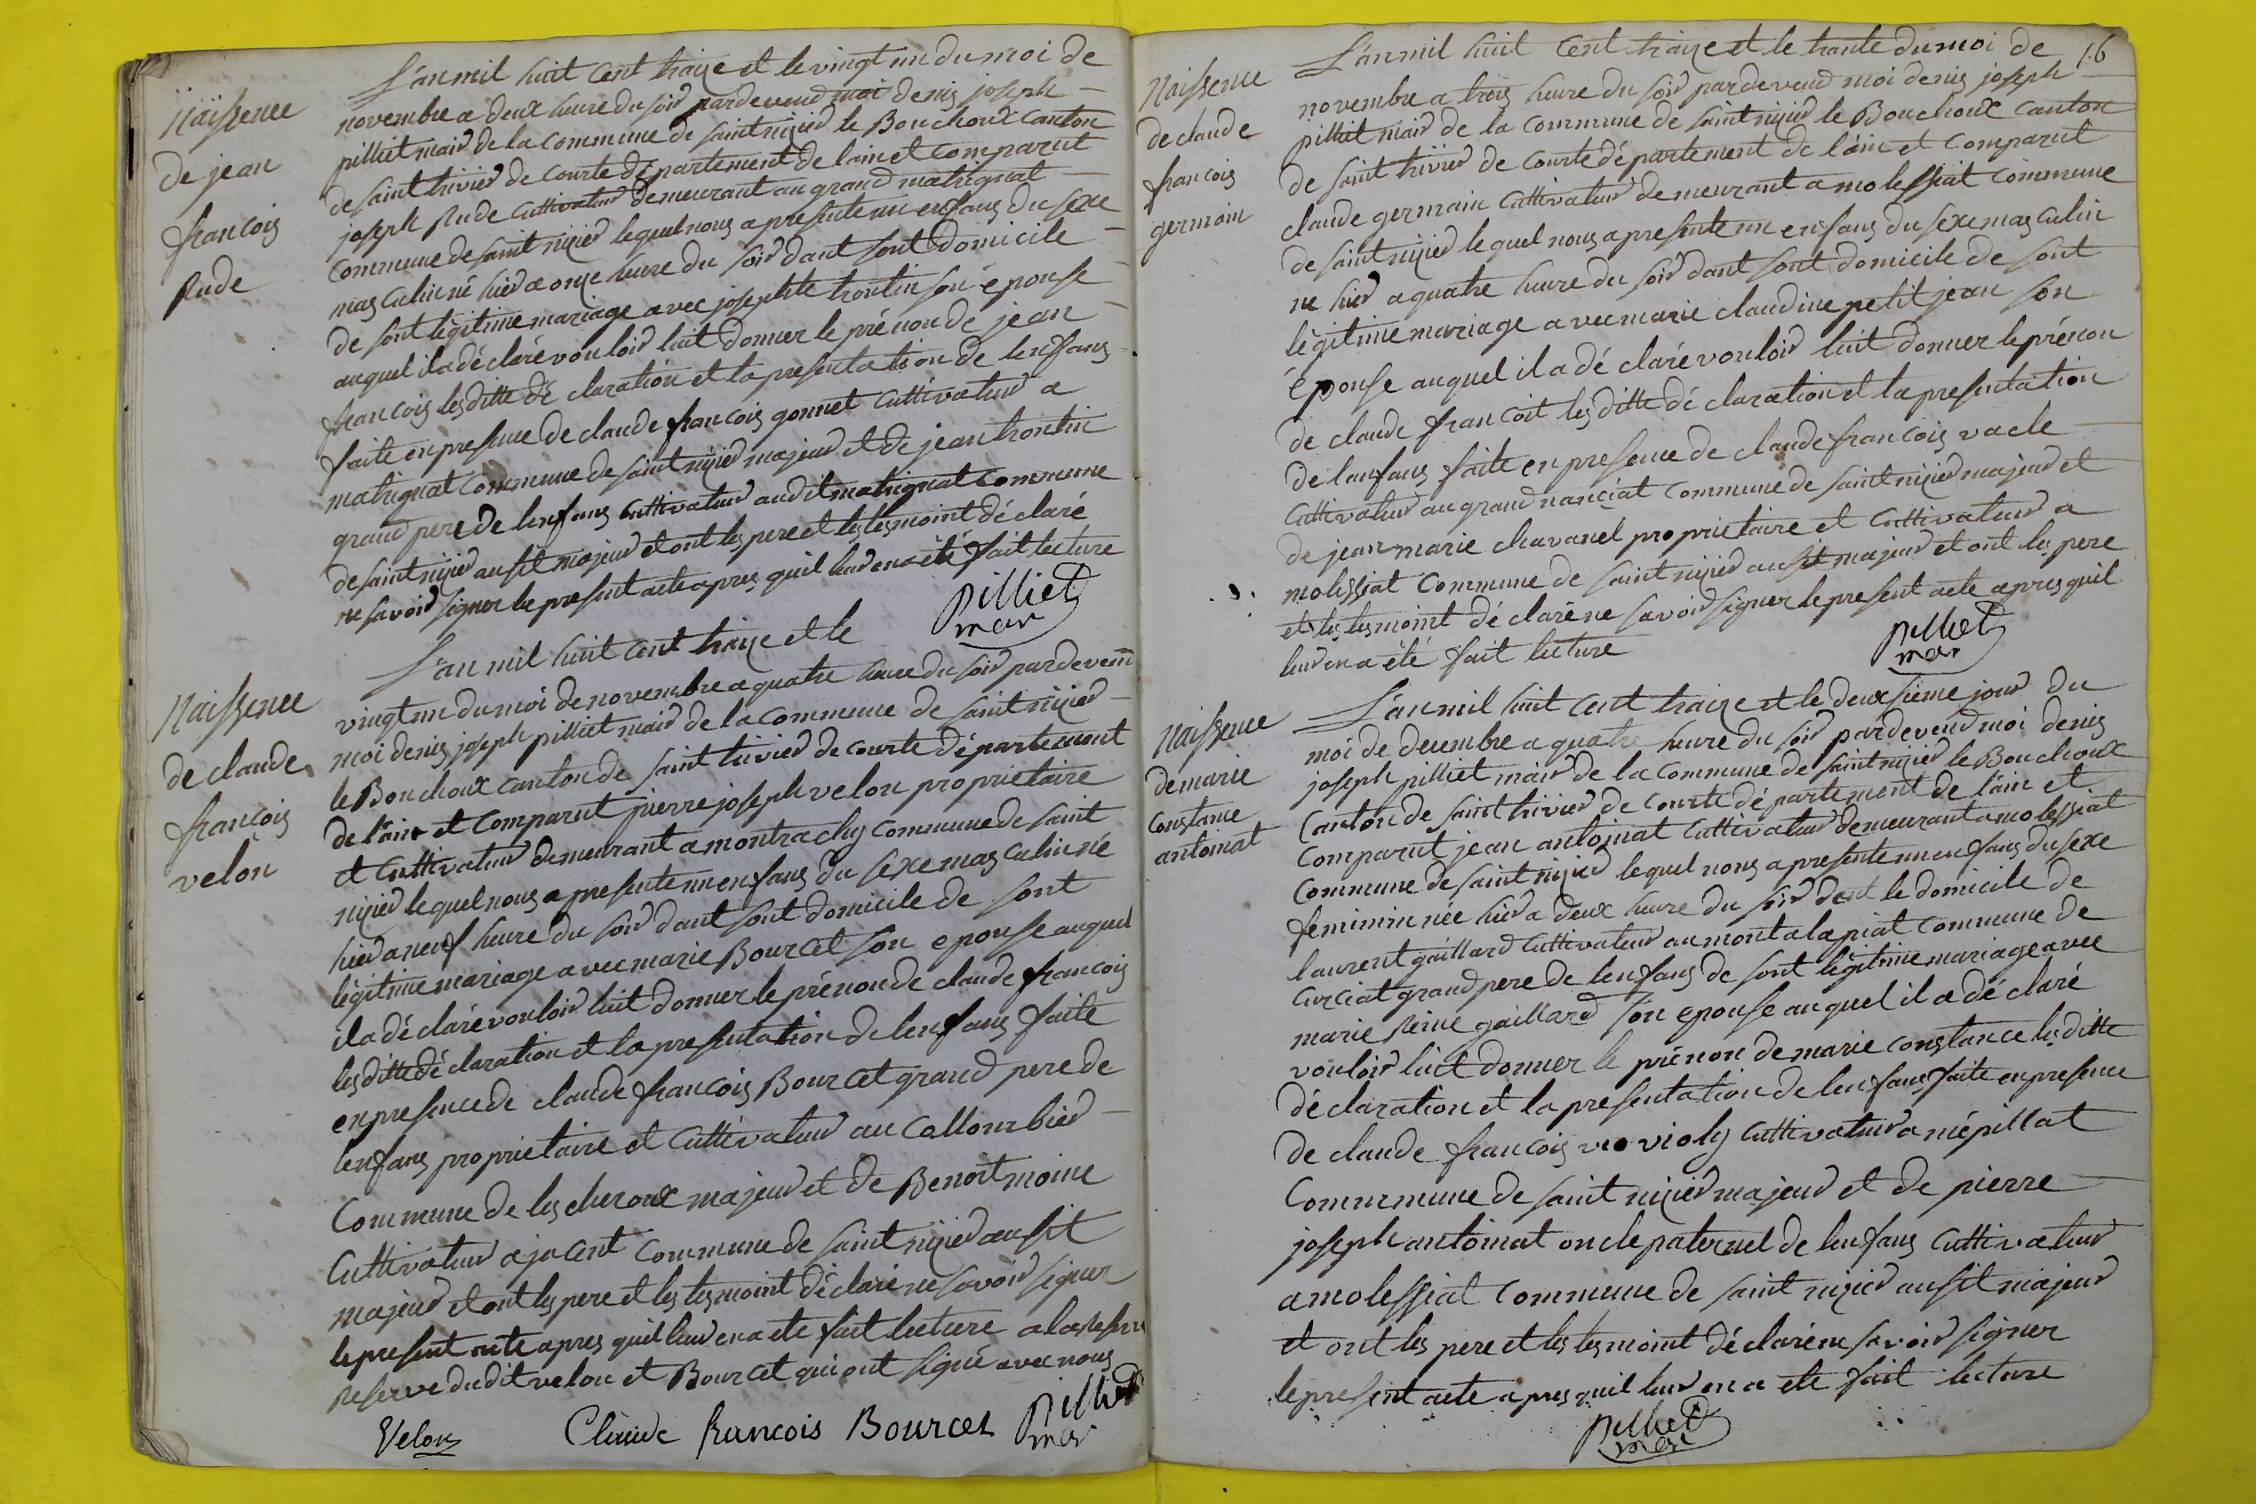 Naissence
de jean
francois
Rude
L'an mil huit cent traize et le vingt un du moi de
novembre a deux heure du soir pardevend moi denis joseph
pilliet mair de la commune de saint nizier le Bouchoux canton
de saint trivier de courte département de lain et comparut
joseph Rude cultivateur demeurant au grand matrignat
commune de saint nizier lequel nous a presente un enfans du sexe
masculin né hier a onze heure du soir dant sont domicile
de sont légitime mariage avec josephte trontin son épouse
auquel il a déclaré vouloir luit donner le prénon de jean
francois lesditte déclaration et la presentation de lenfans
faite en presence de claude francois gonnet cultivateur a
matrignat commune de saint nizier majeur et de jean trontin
grand pere de lenfans cultivateur audit matrignat commune
de saint nizier ausit majeur et ont les pere et les tesmoint déclaré
ne savoir signer le present acte apres quil leur en a été fait lecture
Pilliet
mair
Naissence
de claude
francois
velon
L'an mil huit cent traize et le
vingt un du moi de novembre a quatre heure du soir pardevend
moi denis joseph pilliet mair de la commune de saint nizier
le Bouchoux canton de saint trivier de courte département
de l'ain et comparut pierre joseph velon proprietaire
et cultivateur demeurant a montrachy commune de saint
nizier lequel nous a presente un enfans du sexe masculin né
hier a neuf heure du soir dant sont domicile de sont
légitime mariage avec marie Bourcet son epouse auquel
il a déclaré vouloir luit donner le prénon de claude francois
lesditte déclaration et la presentation de lenfans faite
en presence de claude francois Bourcet grand pere de
lenfans proprietaire et cultivateur au Collombier
Commune de les cheroux majeur et de Benoit moine
Cultivateur a jacent commune de saint nizier ausit
majeur et ont les pere et les tesmoint déclaré ne savoir signer
le present acte apres quil leur en a ete fait lecture a la
Reserve dudit velon et Bourcet qui ont signé avec nous
Velon Claude francois Bourcet Pilliet
mair
16
Naissence
de claude
francois
germain
L'an mil huit cent traize et le trante du moi de
novembre a trois heure du soir pardevend moi denis joseph
pilliet mair de la commune de saint nizier le Bouchoux canton
de saint trivier de courte département de l'ain et comparut
claude germain cultivateur demeurant a molessiat commune
de saint nizier lequel nous a presente un enfans du sexe masculin
ne hier a quatre heure du soir dant sont domicile de sont
légitime mariage avec marie claudine petit jean son
épouse auquel il a déclaré vouloir luit donner le prénon
de claude francoit lesditte déclaration et la presentation
de lenfans faite en presence de claude francois vacle
cultivateur au grand nanciat commune de saint nizier majeur et
de jean marie chavanel proprietaire et cultivateur a
molissiat commune de saint nizier ausit majeur et ont les pere
et les tesmoint déclaré ne savoir signer le present acte apres quil
leur en a été fait lecture
Pilliet
mair
Naissence
de marie
constance
antoinat
L'an mil huit cent traize et le deuxsieme jour du
moi de decembre a quatre heure du soir pardevend moi denis
joseph pilliet mair de la commune de saint nizier le Bouchoux
Canton de saint trivier de courte département de l'ain et
comparut jean antoinat cultivateur demeurant a molessiat
commune de saint nizier lequel nous a presente un enfans du sexe
feminin née hier a deux heure du soir dant le domicile de
laurent gaillard cultivateur au mont a la piat commune de
curciat grand pere de lenfans de sont légitime mariage avec
marie Reine gaillard son epouse auquel il a déclaré
vouloir luit donner le prénon de marie constance lesditte
déclaration et la presentation de lenfans faite en presence
de claude francois violy cultivateur a népillat
Commune de saint nizier majeur et de pierre
joseph antoinat oncle paternel de lenfans cultivateur
a molessiat commune de saint nizier ausit majeur
et ont les pere et les tesmoint déclaré ne savoir signer
le present acte apres quil leur en a ete fait lecture
Pilliet
mair